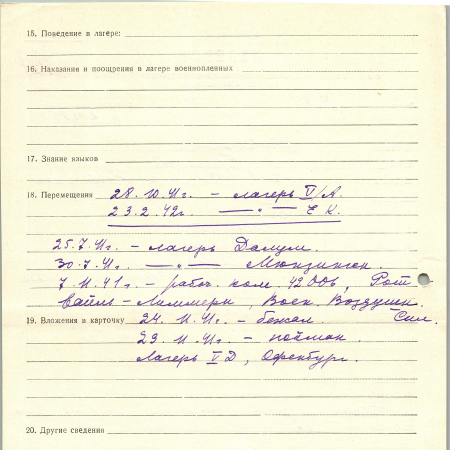 15. Поведение в лагере:
16. Наказания и поощрения в лагере военнопленных
17. Знание языков
18. Перемещения 28.10.41г. – лагерь V/А.
23.2.42г. —„— Е К.
25.7.41г. – лагерь Далум.
30.7.41г. —„— Мюнзинген.
7.11.41г. – рабоч. ком. 42006, Рот
вайль – Лиммерн, Воен. Воздушн.
19. Вложения в карточку 24.11.41г. – бежал Сил.
29.11.41г. – пойман
лагерь V Д, Офенбург.
20. Другие сведения